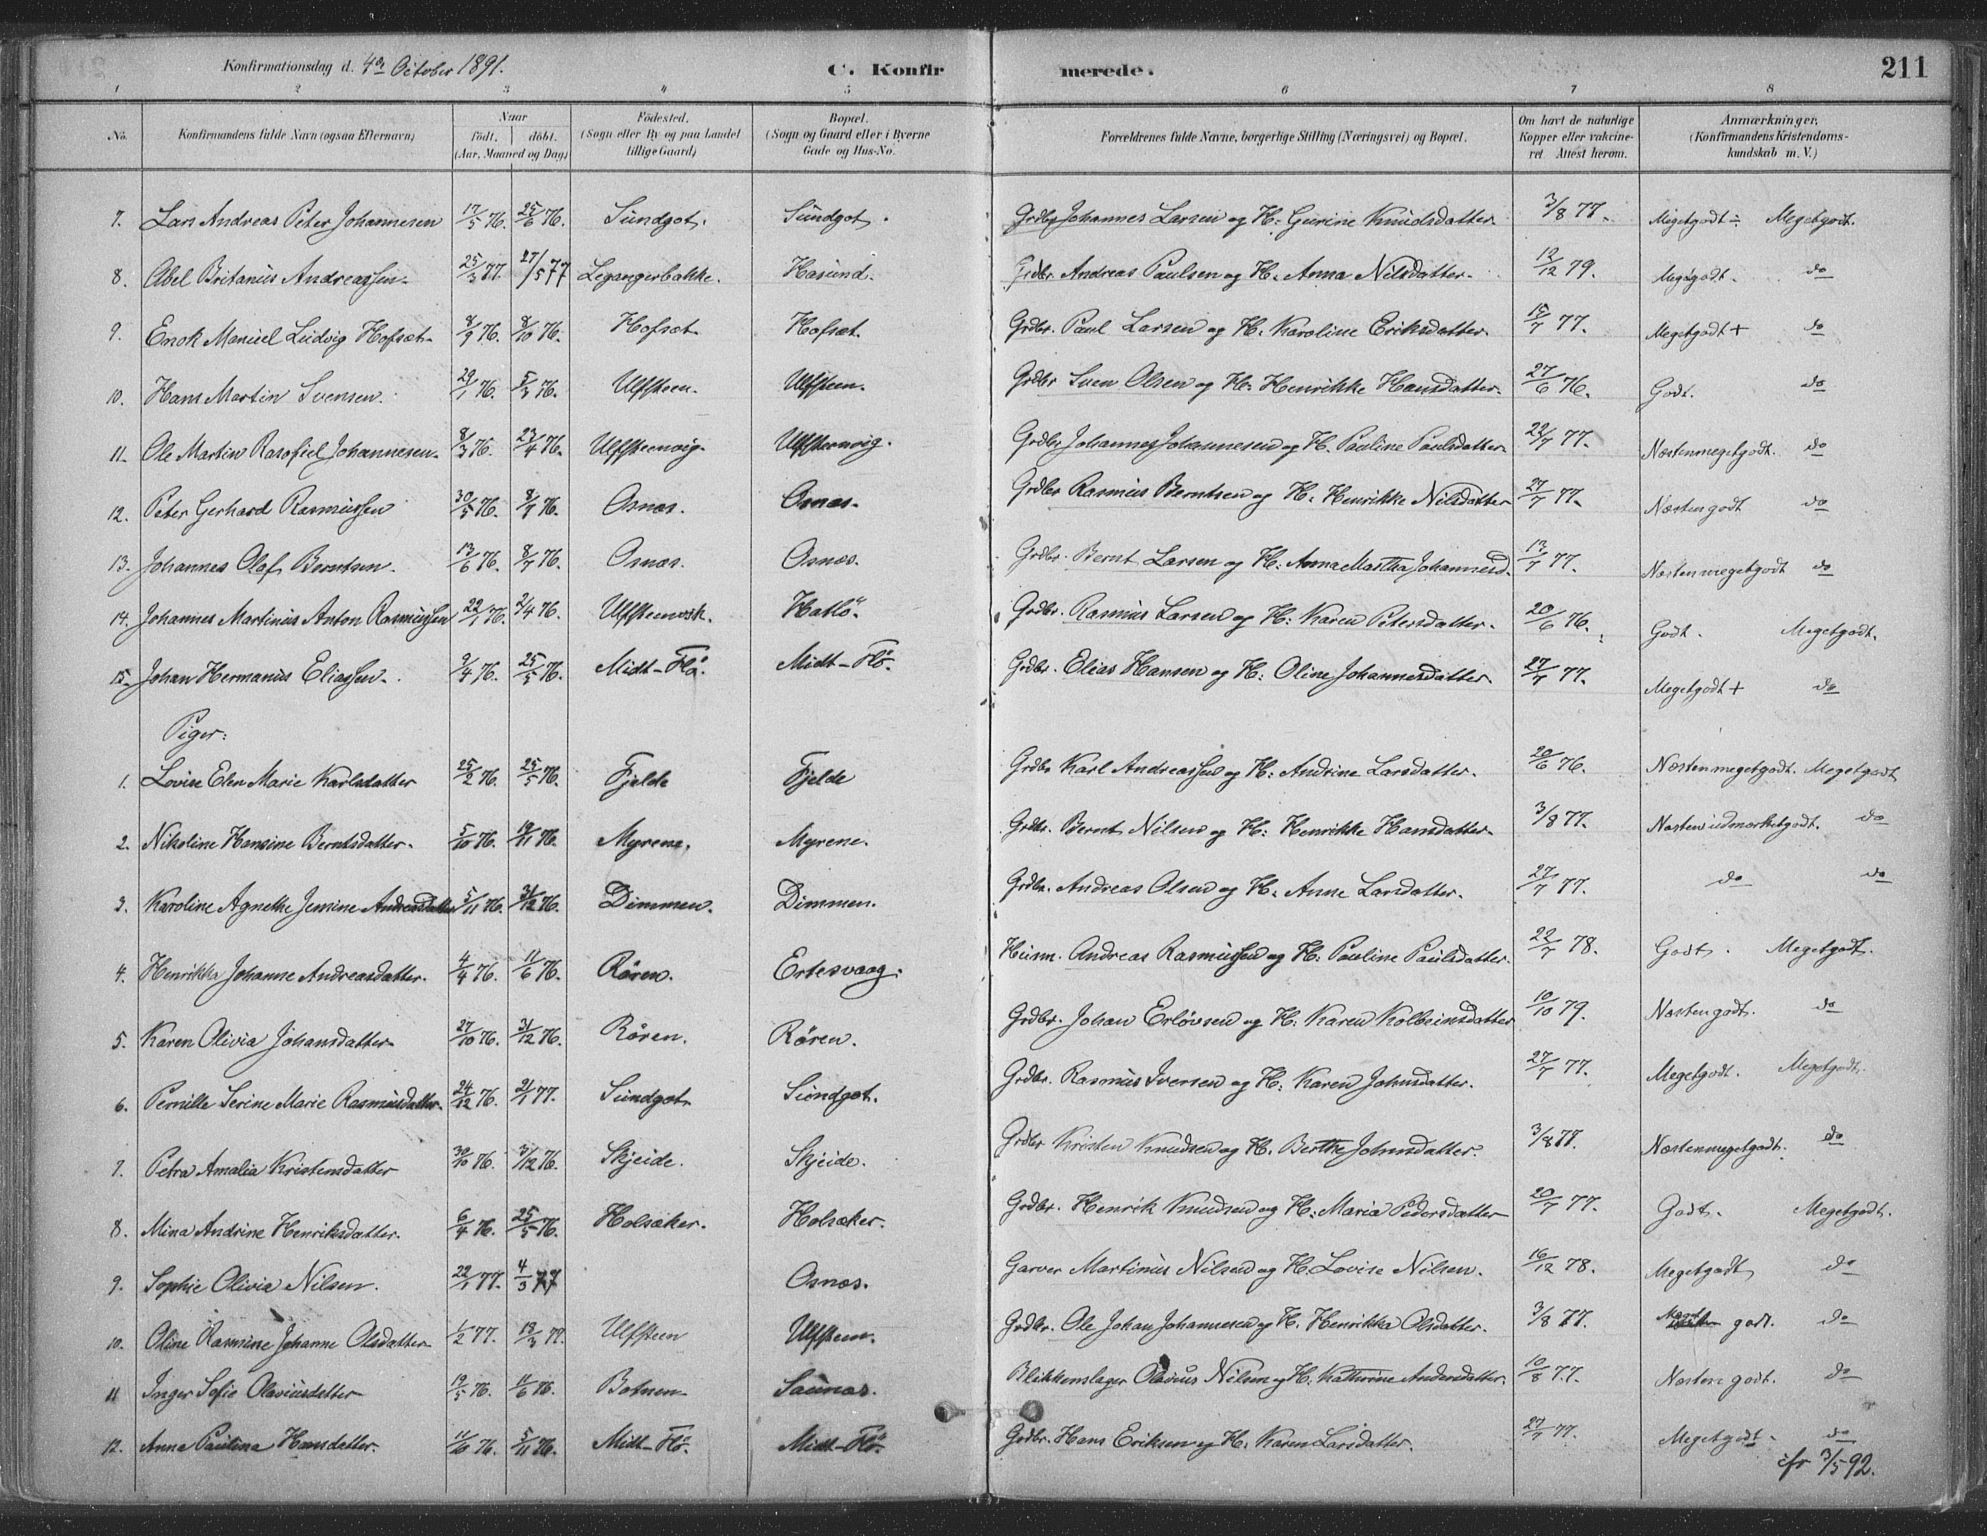 Konfirmationsdag d. 4de October 1891. C. Konfirmerede. 211
1 2 3 4 5 6 7 8
No. Konfirmandens fulde Navn (ogsaa Efternavn) Naar født. døbt. (Aar, Maaned og Dag) Fødested. (Sogn eller By og paa Landet tillige Gaard) Bopæl. (Sogn og Gaard eller i Byerne Gade og Hus-No. Forældrenes fulde Navne, borgerlige Stilling (Næringsvei) og Bopæl. Om havt de naturlige Kopper eller vakcineret. Attest herom. Anmærkninger. (Konfirmandens Kristendomskundskab m. V.)
7. Lars Andreas Peter Johannesen 17/5 76. 25/6 76. Sundgot. Sundgot. Grdbr Johannes Larsen og H: Gurine Knudsdatter. 3/8 77. Megetgodt ÷ Megetgodt.
8. Abel Britanius Andreassen 25/3 77. 27/5 77 Legangerbakke. Hasund. Grdbr. Andreas Paulsen og H: Anna Nilsdatter. 12/12 79. Megetgodt. do
9. Enok Manuel Ludvig Hofset 8/9 76. 8/10 76. Hofset. Hofset. Grdbr. Paul Larsen og H: Karoline Eriksdatter. 15/7 77. Megetgodt + do
10. Hans Martin Svensen. 29/1 76. 5/3 76. Ulfsteen. Ulfsteen. Grdbr Sven Olsen og H: Henrikke Hansdatter. 27/6 76. Godt. do
11. Ole Martin Rasofiel Johannesen. 8/3 76. 23/4 76. Ulfsteenvig. Ulfsteenvig. Grdbr Johannes Johannesen og H. Pauline Paulsdatter 22/7 77. Næstenmegetgodt. do
12. Peter Gerhard Rasmussen 30/5 76. 8/7 76. Osnæs. Osnæs. Grdbr Rasmus Berntsen og H: Henrikke Nilsdatter 27/7 77. Næsten godt do
13. Johannes Olaf Berntsen. 13/6 76. 8/7 76. Osnæs. Osnæs. Grdbr. Bernt Larsen og H: Anna Martha Johannesd. 13/7 77. Næsten megetgodt do
14. Johannes Martinus Anton Rasmussen 22/1 76. 2/4 76. Hatlö Grdbr. Rasmus Larsen og H: Karen Petersdatter. 20/6 76. Godt. Megetgodt.
15. Johan Hermanus Eliassen. 9/4 76. 25/5 76. Midt-Flö. Midt-Flö. Grdbr. Elias Hansen og H: Oline Johannesdatter. 27/7 77. Megetgodt + do
Piger:
1. Lovise Elen Marie Karlsdatter 25/2 76. 25/5 76. Fjelde Fjelde Grdbr Karl Andreassen og H: Andrine Larsdatter. 20/6 76. Næsten megetgodt. Megetgodt
2. Nikoline Hansine Berntsdatter. 5/10 76. 19/11 76. Myrene. Myrene. Grdbr. Bernt Nilsen og H: Henrikke Hansdatter. 3/8 77. Næsten udmerketgodt. do
3. Karoline Agnethe Jensine Andreasdatter 5/11 76. 31/12 76. Dimmen. Dimmen. Grdbr. Andreas Olsen og H: Anne Larsdatter. 27/7 77. do do
4. Henrikka Johanne Andreasdatter. 4/4 76. 11/6 76. Rören. Ertesvaag. Husm. Andreas Rasmussen og H: Pauline Paulsdatter. 22/7 78. Godt. Megetgodt.
5. Karen Olivia Johansdatter 27/10 76. 31/12 76. Rören. Rören. Grdbr. Johan Erlövsen og H: Karen Kolbeinsdatter 10/10 79. Næstengodt. do
6. Pernille Serine Marie Rasmusdatter. 24/12 76. 21/1 77. Sundgot. Sundgot. Grdbr. Rasmus Iversen og H: Karen Johnsdatter. 27/7 77. Megetgodt. Megetgodt.
7. Petra Amalia Kristensdatter 30/10 76. 31/12 76. Skjeide. Skjeide. Grdbr Kristen Knudsen og H. Berthe Johnsdatter. 3/8 77. Næstenmegetgodt. do
8. Mina Andrine Henriksdatter. 6/4 76. 25/5 76. Holsæker. Holsæker. Grdbr. Henrik Knudsen og H: Maria Pedersdatter 20/7 77. Godt. Megetgodt.
9. Sophie Olivia Nilsen. 22/1 77. 4/3 77 Osnæs. Garver Martinus Nilsen og H. Lovise Nilsen. 16/12 78. Megetgodt do
10. Oline Rasmine Johanne Olsdatter 1/2 77. 18/3 77. Ulfsteen Ulfsteen. Grdbr. Ole Johan Johannesen og H. Henrikka Olsdatter. 3/8 77. godt. do
11 Inger Sofie Olaviusdatter 19/5 76. 11/6 76. Botnen Saunæs. Blikkenslager Olavius Nilsen og H. Kathrine Andersdatter. 10/8 77. Næsten godt. do
12. Anne Paulina Hansdatter. 11/10 76. 5/11 76. Midt-Flö Midt-Flö. Grdbr. Hans Eriksen og H. Karen Larsdatter. 27/7 77. Megetgodt. do
cfr 3/5 92.